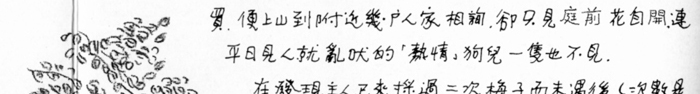 買,便上山到附近幾户人家相詢,卻只見庭前花自開,連
平日見人就亂吠的「熱情」狗兒一隻也不見.
在發現主人已來採過二次梅子而未遇後(次數是